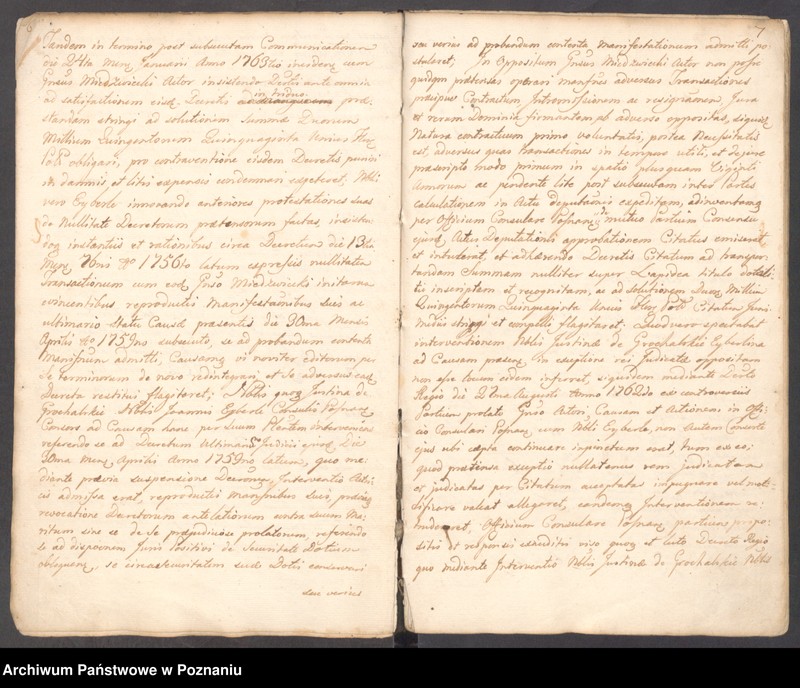 Tandem in termino post subsecutam Communicationem
die 24ta Mens Januarii Anno 1763tio incidens cum
Gnsus Miedzwiecki Actor insistendo Dectis ante omnia
in triduo
ad satisfactionem eisq Decretis præ
standam stringi ad solutionem Summæ Duorum
Millium Quingentorum Quinquaginta Unius Flor
Pol obligari, pro contraventione eisdem Decretis puniri
in damnis et litis expensis condemnari expeteret, Nblis
vero Eyberle innovando anteriores protestationes suas
de Nullitate Decretorum prætensorum factas, insisten
doq instantiis et rationibus circa Decretum die 13tia
Mens 7bris Ao 1756to latum expressis nullitatem
Transactionum cum eod Gnso Miedzwiecki initarum
evincentibus reproductis Manifestationibus suis ac
ultimario Statu Causæ præsentis die 30ma Mensis
Aprilis Ao 1759no subsecuto, se ad probandum contenta
Manifsnum admitti, Causamq vi noviter Editorum per
se terminorum de novo redintegrari et se adversus eadem
Decreta restitui flagitaret; Nblis quoq Justina de
Grochalskie Nblis Joannis Eyberle Consulis Posnans
Consors ad Causam hanc per suum Plentem interveniens
referendo se ad Decretum Ultimarium Judicii ejusq Die
30ma Mens Aprilis Anno 1759no latum, quo me
diante prævia suspensione Decorum, Interventio Acti
cis admissa erat, reproductis Manifnibus suis, prævia
revocatione Decretorum antelatiorum contra suum Ma
ritum sine se de se præjudiciose prolatorum, referendo
se ad dispoenem Juris Positivi de Securitate Dotium
obloquens, se circa securitatem suæ Dotis conservari
seu verius
7
seu verius ad probandum contenta Manifestationum admitti po
stularet; In Oppositum Gnsus Miedzwiecki Actor non posse
quidqm prætensas operari manfnes adversus Transactiones
præcipue Contractum Intromissionem ac resignamen, Jura
et rerum Dominia firmantem ab adverso oppositas, siquidem
Natura contractuum primo voluntatis, postea Necessitatis
est, adversus quas transactiones in tempore utili, et de jure
præscripto modo primum in spatio plusquam Viginti
Annorum ac pendente lite post subsecutam inter Partes
calculationem in Actu deputationis expeditam, adinventamq
per Officium Consulare Posnans de mutuo Partium Consensu
ejusd Actus Deputationis approbationem Citatus emiserat
et intulerat, et adhærendo Decretis Citatum ad transpor
tandam Summam nulliter super Lapidea titulo dotali
tio inscriptam et recognitam, ac ad solutionem Duor Millium
Quingentorum Quinquaginta Unius Flor Pol Citatum Juris
Mediis stringi et compelli flagitaret; Quod vero spectabat
interventionem Nblis Justinæ de Grochalskie Eyberlina
ad Causam præsen, in exceptione rei Judicatæ oppositam
non esse locum eidem inferret, siquidem mediante Decto
Regio die 27ma Augusti Anno 1762do ex controversiis
Partium prolato Gnso Actori, Causam et Actionem in Offi
cio Consulari Posnans cum Nbli Eyberle, non autem Consorte
ejus ubi cæpta continuare injunctum erat, tum ex eo,
quod prætensa exceptio nullitatum rem judicatam
et judicatas per Citatum acceptata impugnare vel mor
tificare valeat allegaret, eandemq Interventionem re
mideret, Officium Consulare Posnans partium propo
sitis et responsis exauditis viso quoq et lecto Decreto Regio
quo mediante Interventio Nblis Justinæ de Grochalskie Nblis
Archiwum Państwowe w Poznaniu